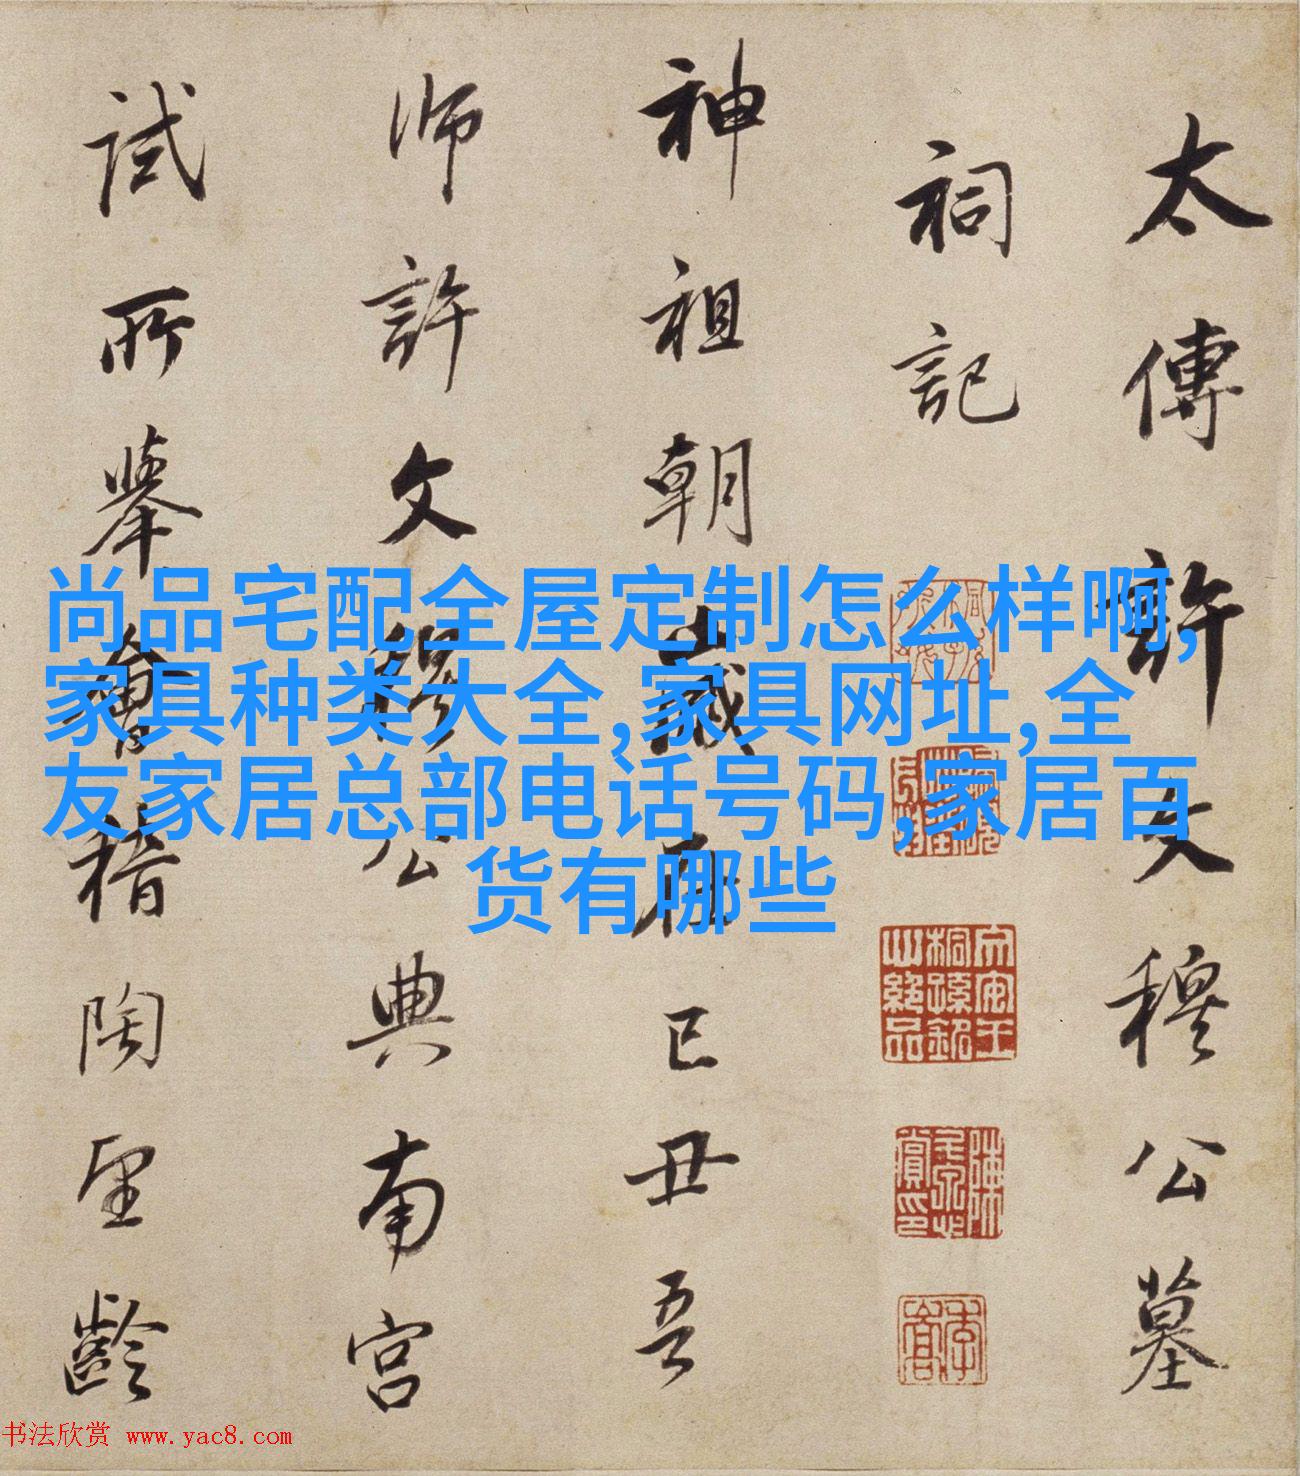 太傅許文穆公墓
祠記
神祖朝歲在己丑吾
師許文穆公典南宮
試所舉會稽陶望齡
尚品宅配全屋定制怎么样啊,
家具种类大全,家具网址,全
友家居总部电话号码,家居百
货有哪些
书法欣赏 www.yac8.com